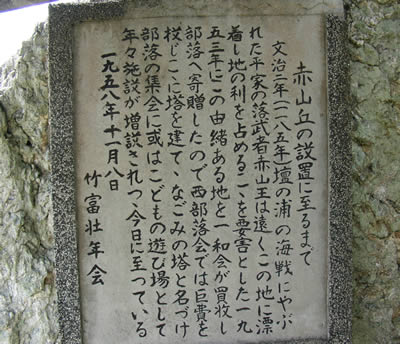 赤山丘の設置に至るまで
文治元年(一一八五年)壇の浦の海戦にやぶ
れた平家の落武者赤山王は遠くこの地に漂
着し地の利を占めるここを要害とした一九
五三年にこの由緒ある地を一和会が買收し
部落へ寄贈したので西部落会では巨費を
投じここに塔を建て、なごみの塔と名づけ
部落の集会に或はこどもの遊び場として
年々施設が増設されつゝ今日に至っている
一九五八年十一月八日
竹富壮年会